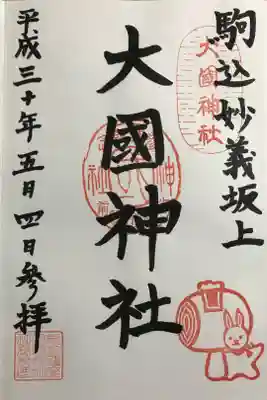 駒込妙義坂上
大國神社
大國神社
平成三十年五月四日參拝